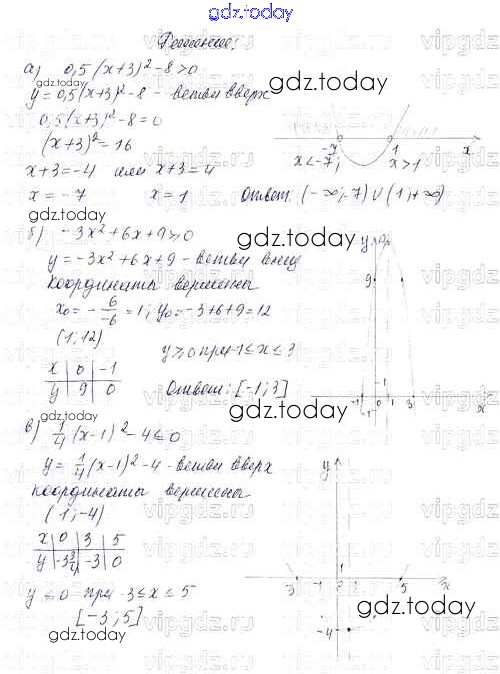 gdz.today
Решение:
а) 0,5(x+3)² - 8 > 0
y = 0,5(x+3)² - 8 - ветви вверх
0,5(x+3)² - 8 = 0
(x+3)² = 16
x+3 = -4 или x+3 = 4
x = -7 x = 1
-7 1 x
x < -7; x > 1
Ответ: (-∞; -7) ∪ (1; +∞)
gdz.today
gdz.today
gdz.today
б) -3x² + 6x + 9 ≥ 0
gdz.today
y = -3x² + 6x + 9 - ветви вниз
координаты вершины
x₀ = - 6/-6 = 1; y₀ = -3+6+9 = 12
(1; 12)
y ≥ 0 при -1 ≤ x ≤ 3
x 0 -1
y 9 0
Ответ: [-1; 3]
y
9
1
-1 0 1 3 x
gdz.today
gdz.today
в) 1/4 (x-1)² - 4 ≤ 0
y = 1/4 (x-1)² - 4 - ветви вверх
координаты вершины
(1; -4)
x 0 3 5
y -3 3/4 -3 0
y ≤ 0 при -3 ≤ x ≤ 5
[-3; 5]
y
1
-3 -1 0 1 5 x
-4
gdz.today
gdz.today
gdz.today
vipgdz.ru